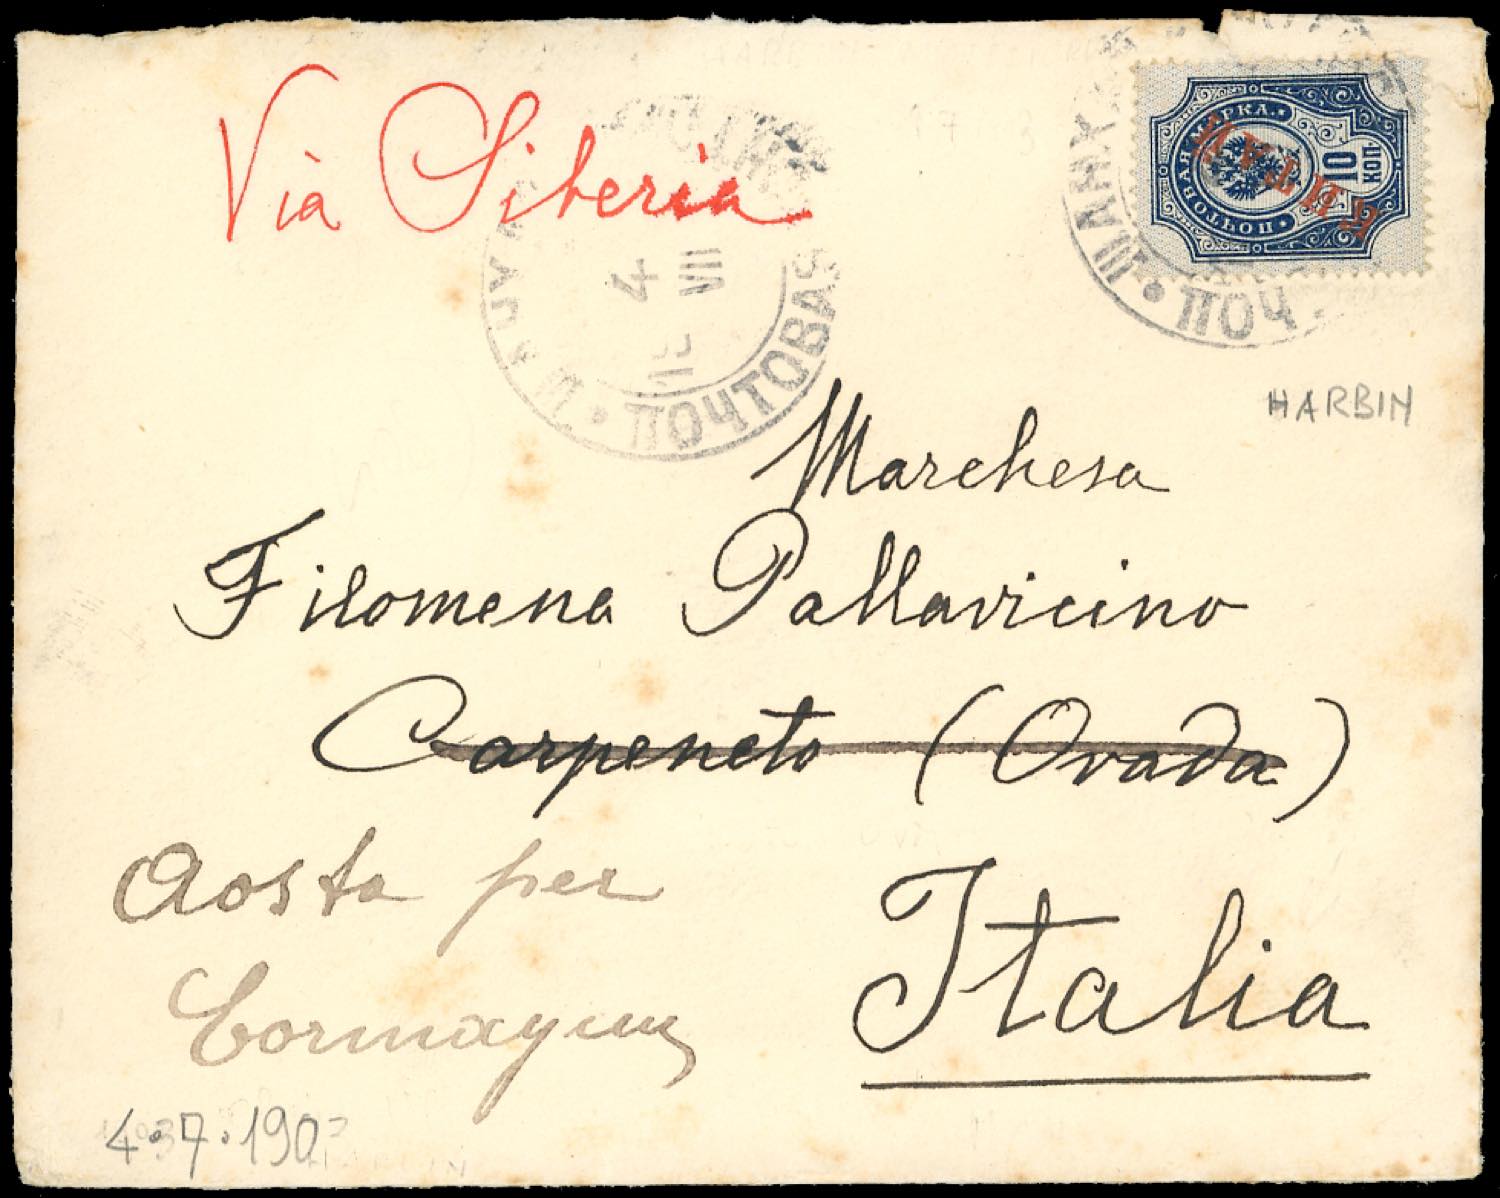 Via Siberia
ПОЧТОВАЯ МАРКА.
10
КОП.
КИТАЙ
ШАНХ
ПОЧ
4
VII
ПОЧТОВАЯ
HARBIN
Marchesa
Filomena Pallavicino
Carpeneto (Ovada)
Aosta per
Italia
4.7.190